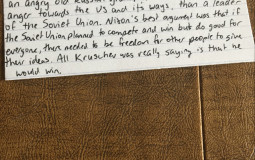 an angry old Russian
anger towards the US and its ways, than a leader
of the Soviet Union. Nixon's best argument was that if
the Soviet Union planned to compete and win but do good for
everyone, then needed to be freedom for other people to give
their ideas. All Kruschev was really saying is that he
would win.